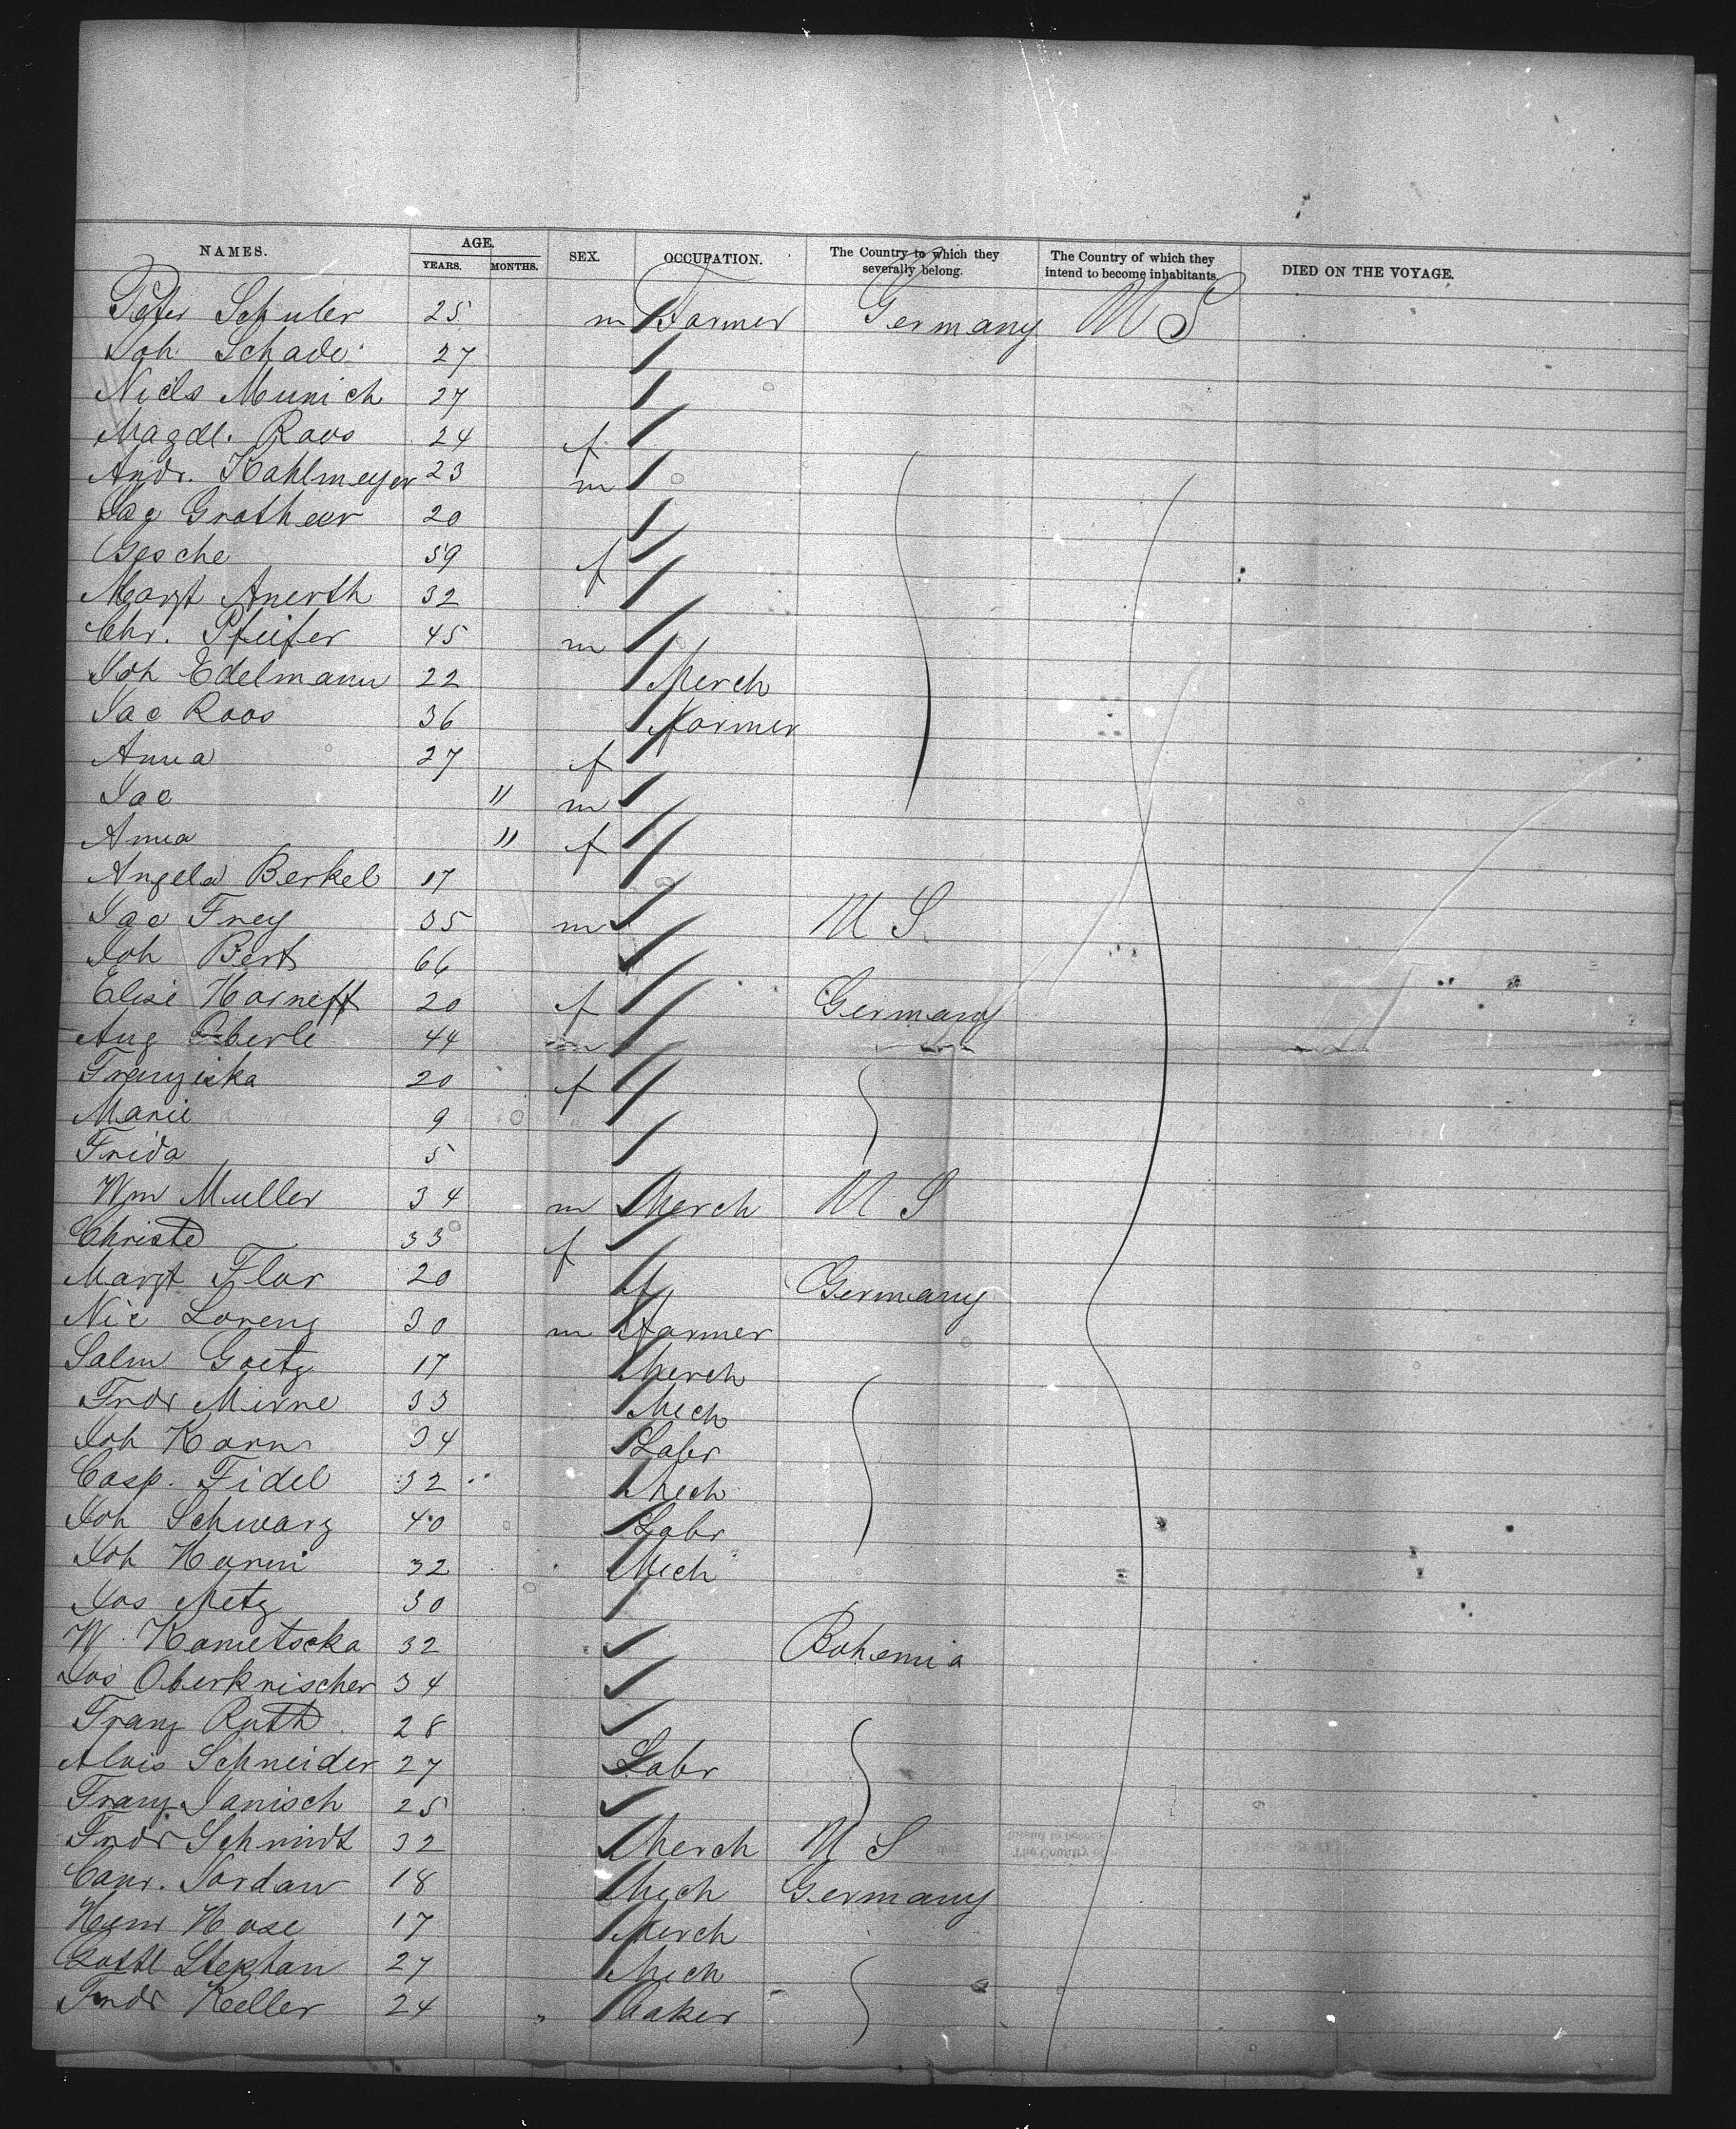 NAMES. AGE. SEX. OCCUPATION. The Country to which they severally belong. The Country of which they intend to become inhabitants. DIED ON THE VOYAGE.
YEARS. MONTHS.
Peter Schuler 25 m Farmer Germany U S
Joh Schade 27
Niels Munich 27
Magdl. Roos 24 f
Andr. Kahlmeyer 23 m
Jac Grotheer 20
Gesche 59 f
Margt Anerth 32
Chr. Pfeifer 45 m
Joh Edelmann 22 Merch
Jac Roos 36 farmer
Anna 27 f
Jac 11 m
Anna 11 f
Angela Berkel 17
Jac Frey 35 m U S
Joh Bert 66
Elise Harneff 20 f Germany
Aug Oberle 44 m
Franziska 20 f
Marie 9
Frida 5
Wm Muller 34 m Merch U S
Christe 33 f
Margt Flor 20 f Germany
Nic Lorenz 30 m farmer
Salm Goetz 17 Merch
Frdr Mirne 33 Mech
Joh Korn 34 Labr
Casp. Fidel 32 Mech
Joh Schwarz 40 Labr
Joh Harm 32 Mech
Jos Metz 30
W. Kametscka 32 Bohemia
Jos Oberknischer 34
Franz Ruth 28
Alois Schneider 27 Labr
Franz Janisch 25
Frdr Schmidt 32 Merch U S
Conr. Jordan 18 Mech Germany
Henr Hase 17 Merch
Gottl Stephan 27 Mech
Frdr Keller 24 baker